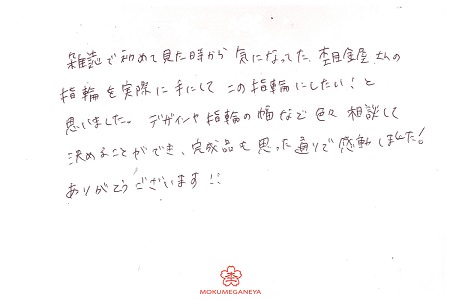 雑誌で初めて見た時から 気になってた 杢目金屋さんの
指輪を実際に手にして この指輪にしたい！と
思いました。デザインや指輪の幅など色々相談して
決めることができ、完成品も思った通りで感動しました！
ありがとうございます！！
MOKUMEGANEYA